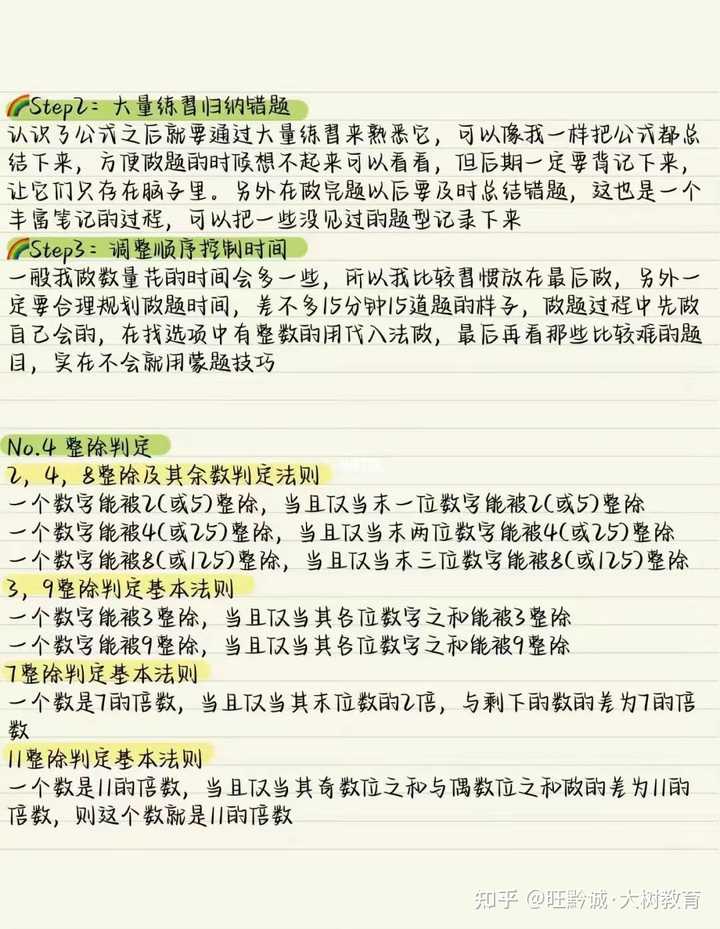 🌈Step2：大量练习归纳错题
认识了公式之后就要通过大量练习来熟悉它，可以像我一样把公式都总
结下来，方便做题的时候想不起来可以看看，但后期一定要背记下来，
让它们只存在脑子里。另外在做完题以后要及时总结错题，这也是一个
丰富笔记的过程，可以把一些没见过的题型记录下来
🌈Step3：调整顺序控制时间
一般我做数量花的时间会多一些，所以我比较习惯放在最后做，另外一
定要合理规划做题时间，差不多15分钟15道题的样子，做题过程中先做
自己会的，在找选项中有整数的用代入法做，最后再看那些比较难的题
目，实在不会就用蒙题技巧
No.4 整除判定
2，4，8整除及其余数判定法则
一个数字能被2(或5)整除，当且仅当末一位数字能被2(或5)整除
一个数字能被4(或25)整除，当且仅当末两位数字能被4(或25)整除
一个数字能被8(或125)整除，当且仅当末三位数字能被8(或125)整除
3，9整除判定基本法则
一个数字能被3整除，当且仅当其各位数字之和能被3整除
一个数字能被9整除，当且仅当其各位数字之和能被9整除
7整除判定基本法则
一个数是7的倍数，当且仅当其末位数的2倍，与剩下的数的差为7的倍
数
11整除判定基本法则
一个数是11的倍数，当且仅当其奇数位之和与偶数位之和做的差为11的
倍数，则这个数就是11的倍数
知乎 @旺黔诚·大树教育